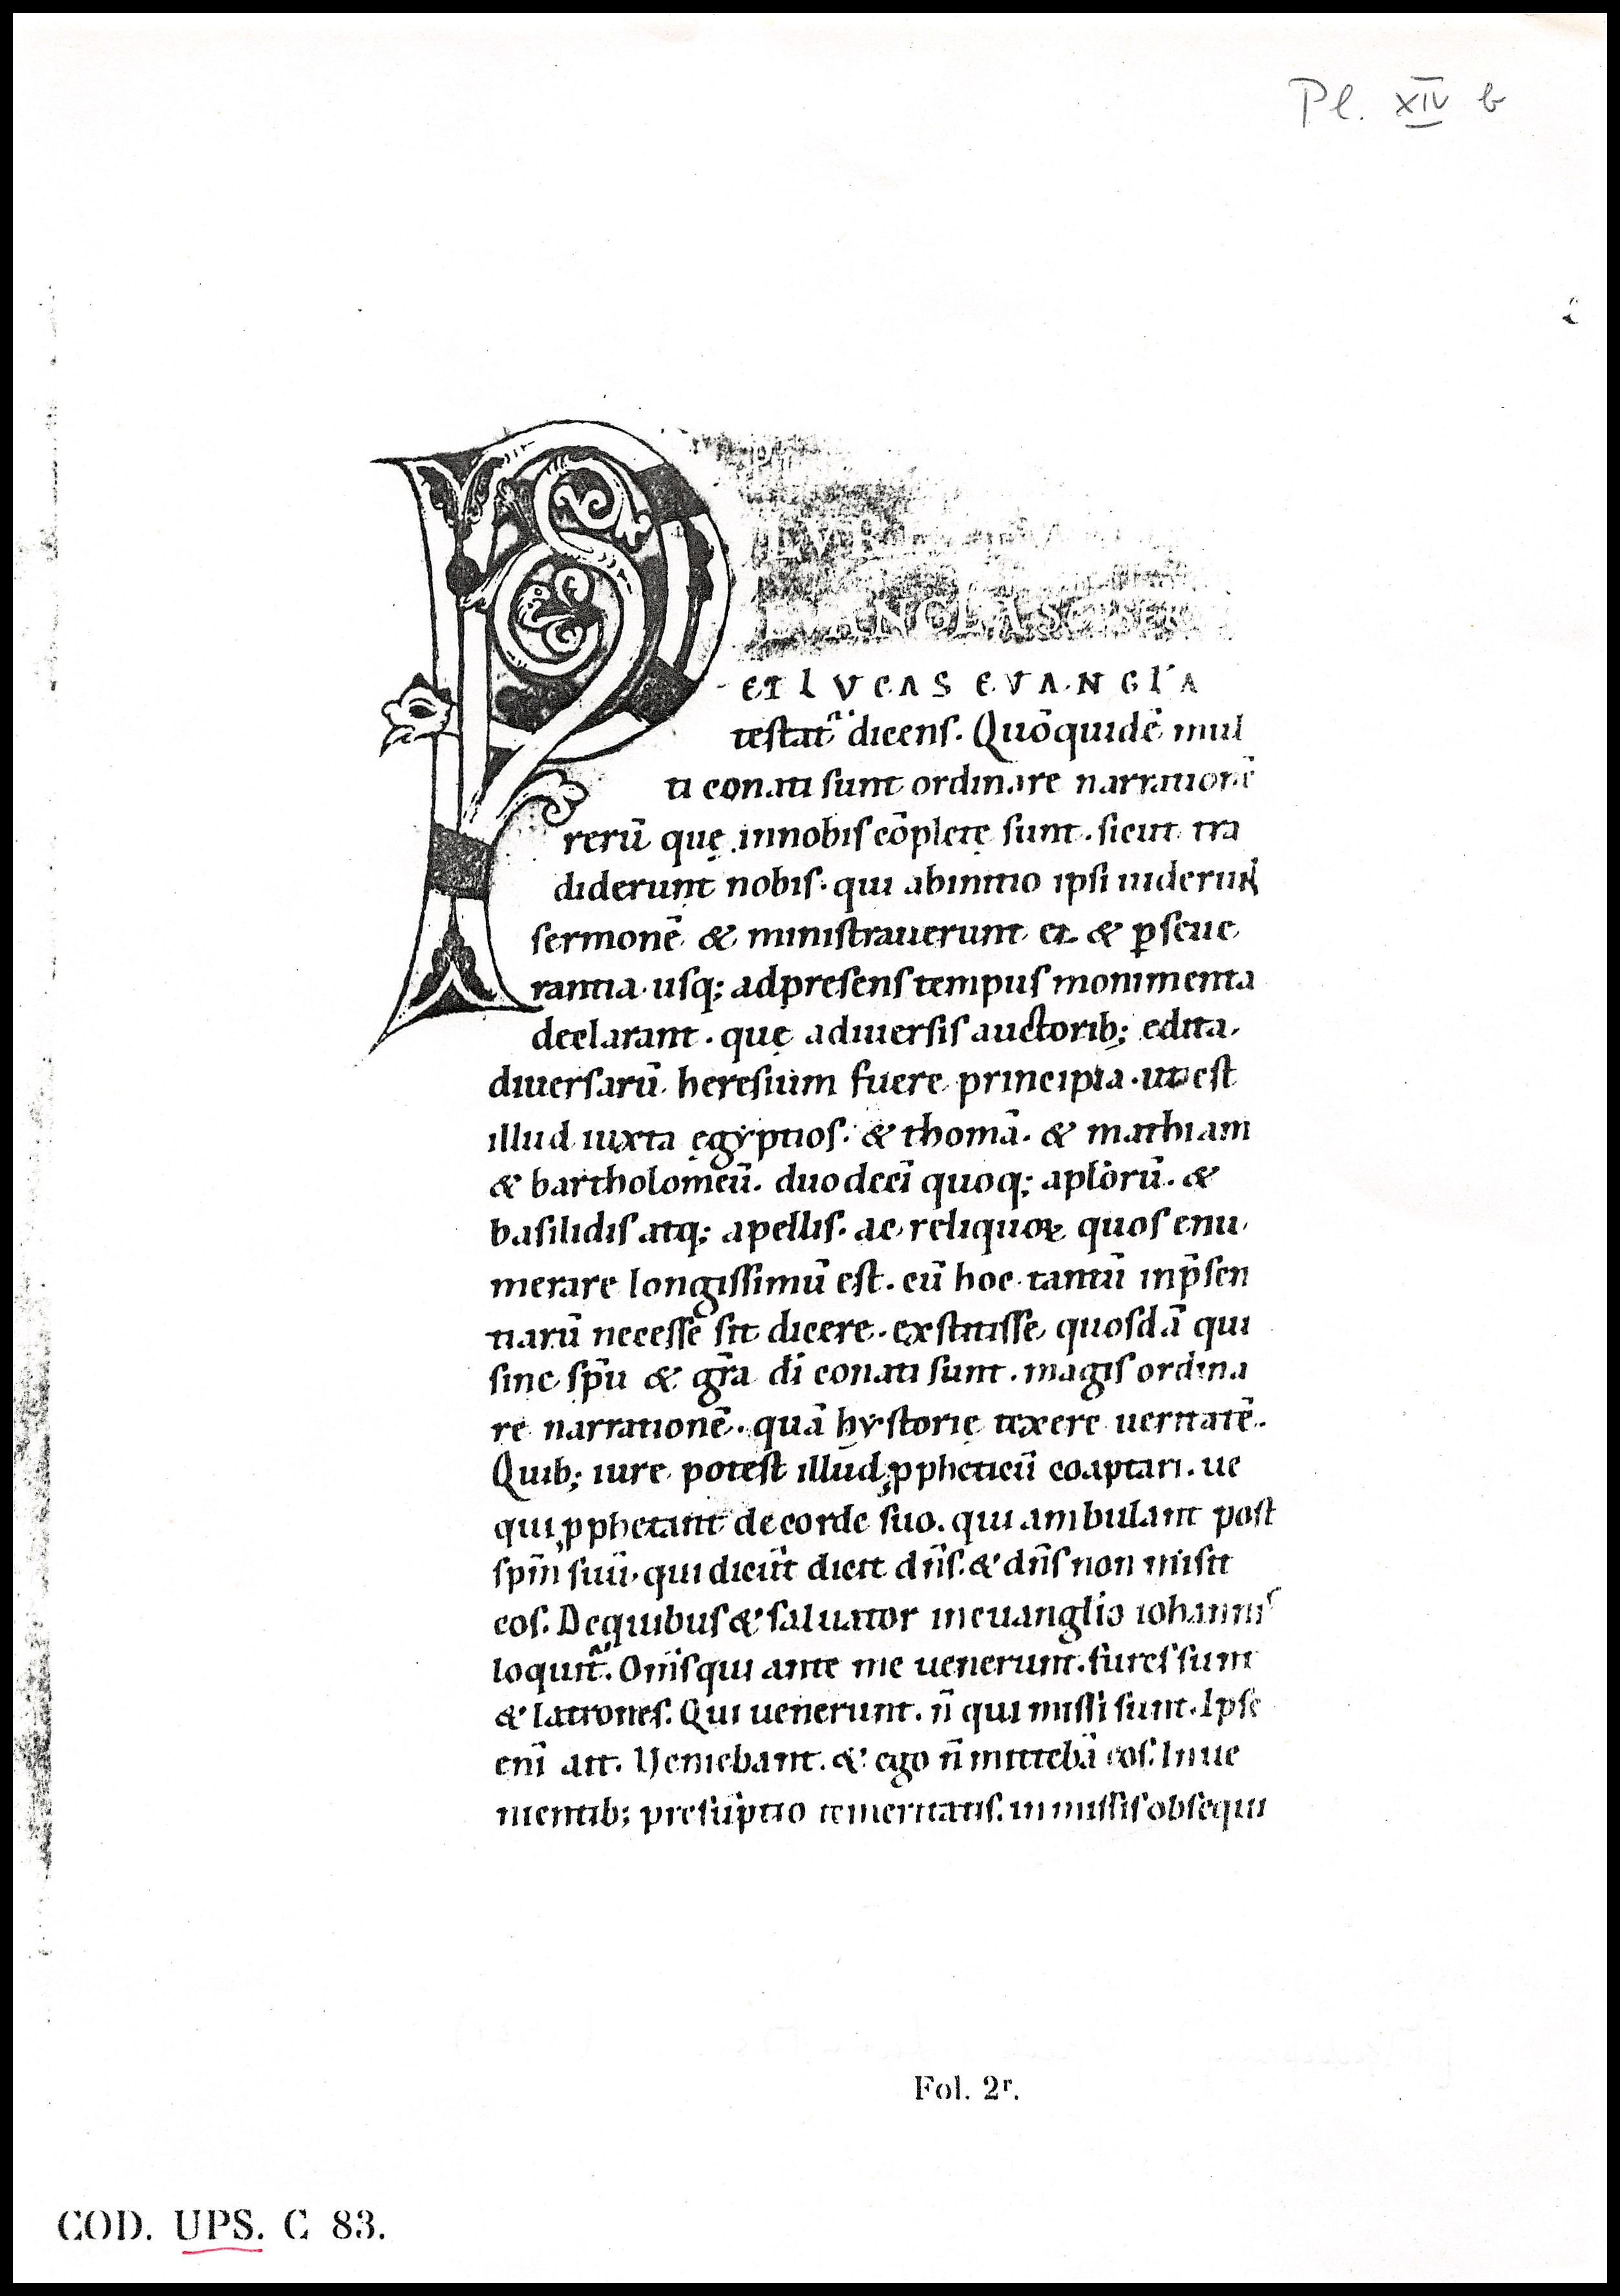 Pl. XIV b
P
ET LVCAS EVANGL'A
testat᷑ dicenſ. Quō quidē mul
ti conati ſunt ordinare narrationē
rerū quę innobiſ cōpletę ſunt. ſicut tra
diderunt nobiſ. qui abinitio ipſi uiderunt
ſermonē & miniſtrauerunt ei. & ꝑſeue
rantia uſq; adpreſenſ tempuſ monimenta
declarant. quę adiuerſiſ auctorib; edita.
diuerſarū hereſium fuere principia. ut eſt
illud iuxta ęgyptioſ. & thomā. & mathiam
& bartholomeū. duodecī quoq; aplōrū. &
baſilidiſ atq; apelliſ. ac reliquoꝝ quoſ enu
merare longiſſimū eſt. cū hoc tantū inp̄ſen
tiarū neceſſe ſit dicere. exſtitiſſe quoſdā qui
ſine ſpū & gr̄a dī conati ſunt. magiſ ordina
re narrationē. quā hyſtorię texere ueritatē.
Quib; iure poteſt illud ꝓpheticū coaptari. ue
qui ꝓphetant decorde ſuo. qui ambulant poſt
ſpm̄ ſuū. qui dicūt dicit dn̄ſ. & dn̄ſ non miſit
eoſ. Dequibuſ & ſaluator ineuanglio iohanniſ
loquit᷑. Om̄ſ qui ante me uenerunt. fureſ ſunt
& latroneſ. Qui uenerunt. n̄ qui miſſi ſunt. Ipſe
enī ait. Veniebant. & ego n̄ mittebā eoſ. Inue
nientib; preſūptio temeritatiſ. in miſſiſ obſequi
Fol. 2r.
COD. UPS. C 83.